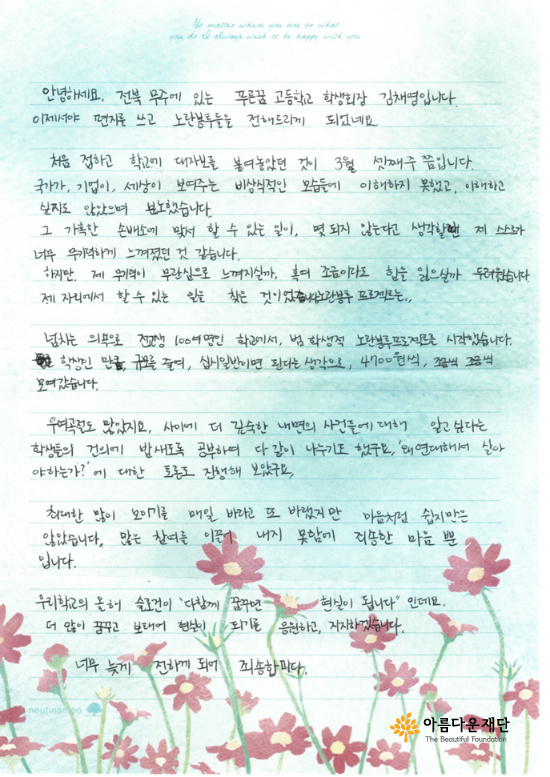 No matter where you are or what
you do I always wish to be happy with you
안녕하세요. 전북 무주에 있는 푸른꿈 고등학교 학생회장 김채영입니다.
이제서야 편지를 쓰고 노란봉투들을 전해드리게 되었네요.
처음 접하고 학교에 대자보를 붙여놓았던 것이 3월 셋째주 쯤입니다.
국가가, 기업이, 세상이 보여주는 비상식적인 모습들에 이해하지 못했고, 이해하고
싶지도 않았으며 분노했습니다.
그 가혹한 손배소에 맞서 할 수 있는 일이, 몇 되지 않는다고 생각할때 제 스스로가
너무 무기력하게 느껴졌던 것 같습니다.
하지만, 제 무기력이 무관심으로 느껴지실까, 혹여 조금이라도 힘을 잃으실까 두려웠습니다
제 자리에서 할 수 있는 일을 찾은 것이었습니다 노란봉투 프로젝트는..
넘치는 의욕으로 전교생 100여명인 학교에서, 범 학생적 노란봉투프로젝트를 시작했습니다.
학생인 만큼, 규모를 줄여, 십시일반이면 된다는 생각으로, 4700원씩, 조금씩 조금씩
모여갔습니다.
우여곡절도 많았지요, 사이에 더 깊숙한 내면의 사건들에 대해 알고 싶다는
학생들의 건의에 밤새도록 공부하여 다 같이 나누기도 했구요, '왜 연대하며 살아
야하는가?'에 대한 토론도 진행해 보았구요,
최대한 많이 모이기를 매일 바라고 또 바랬지만 마음처럼 쉽지만은
않았습니다, 많은 참여를 이끌어 내지 못함에 죄송한 마음 뿐
입니다.
우리학교의 올해 슬로건이 "다함께 꿈꾸면 현실이 됩니다" 인데요.
더 많이 꿈꾸고 보태어 현실이 되기를 응원하고, 지지하겠습니다.
너무 늦게 전하게 되어 죄송합니다.
neutinamoo
아름다운재단
The Beautiful Foundation